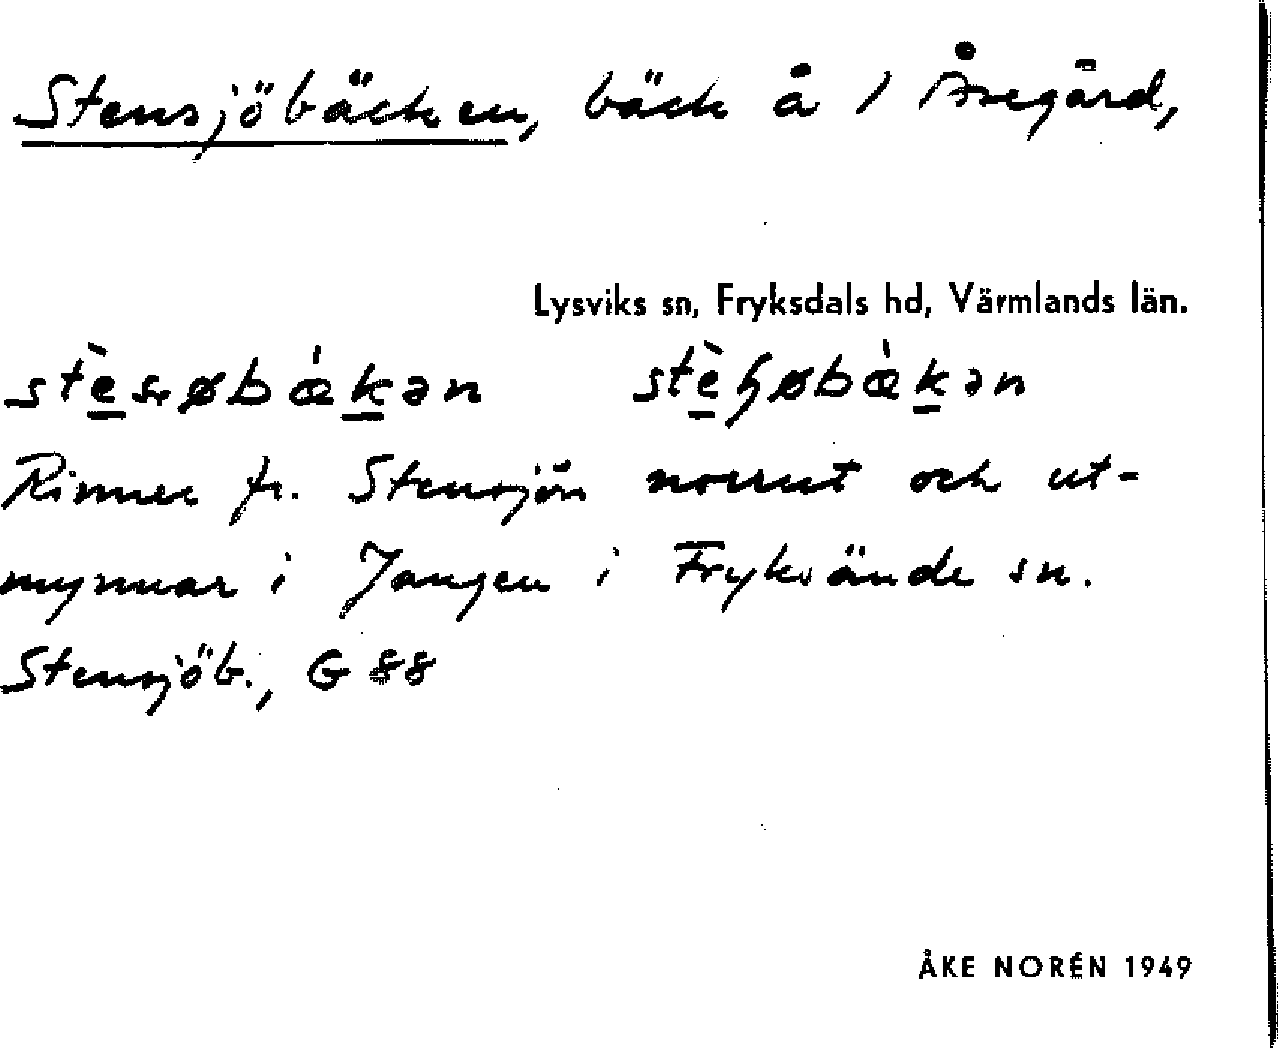 Stensjöbäcken, bäck å 1 Åsegård,
Lysviks sn, Fryksdals hd, Värmlands län.
Rinner fr. Stensjön norrut och ut-
mynnar i Jangen i Fryksände sn.
Stensjöb., G 88
ÅKE NORÉN 1949